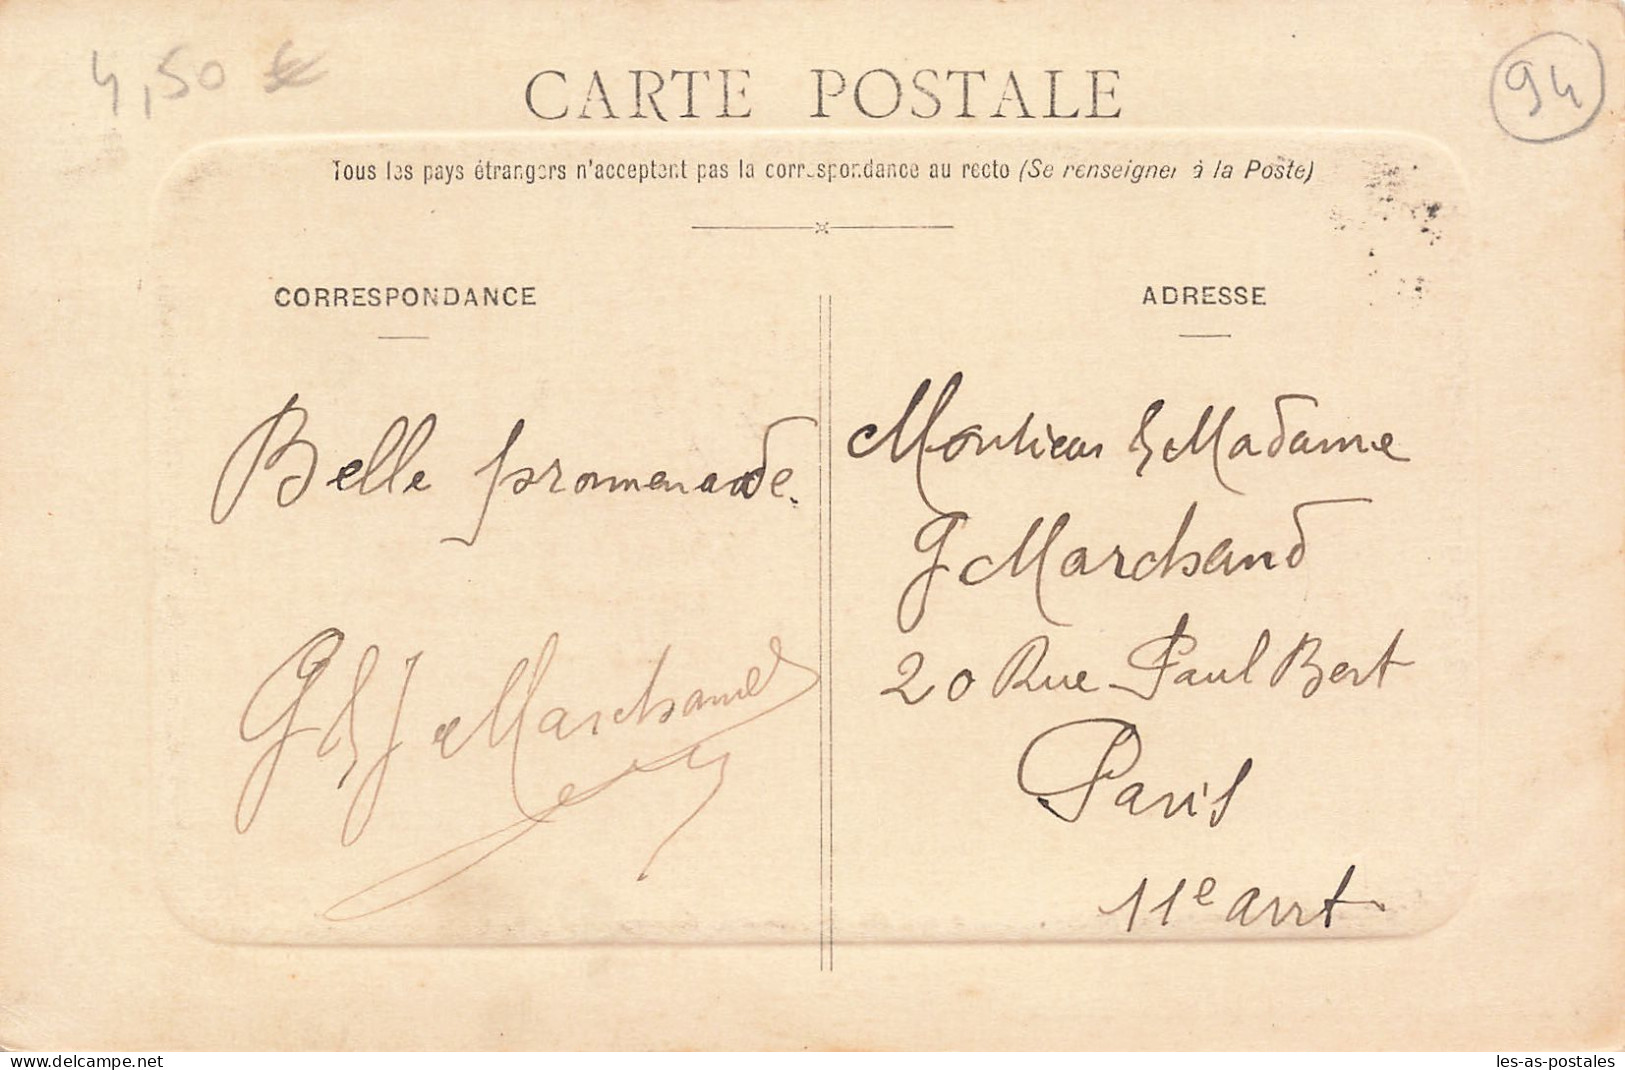 4,50 €
94
CARTE POSTALE
Tous les pays étrangers n'acceptent pas la correspondance au recto (Se renseigner à la Poste)
CORRESPONDANCE
Belle promenade.
G & J Marchand
ADRESSE
Monsieur & Madame
G Marchand
20 Rue Paul Bert
Paris
11e arrt
www.delcampe.net
les-as-postales